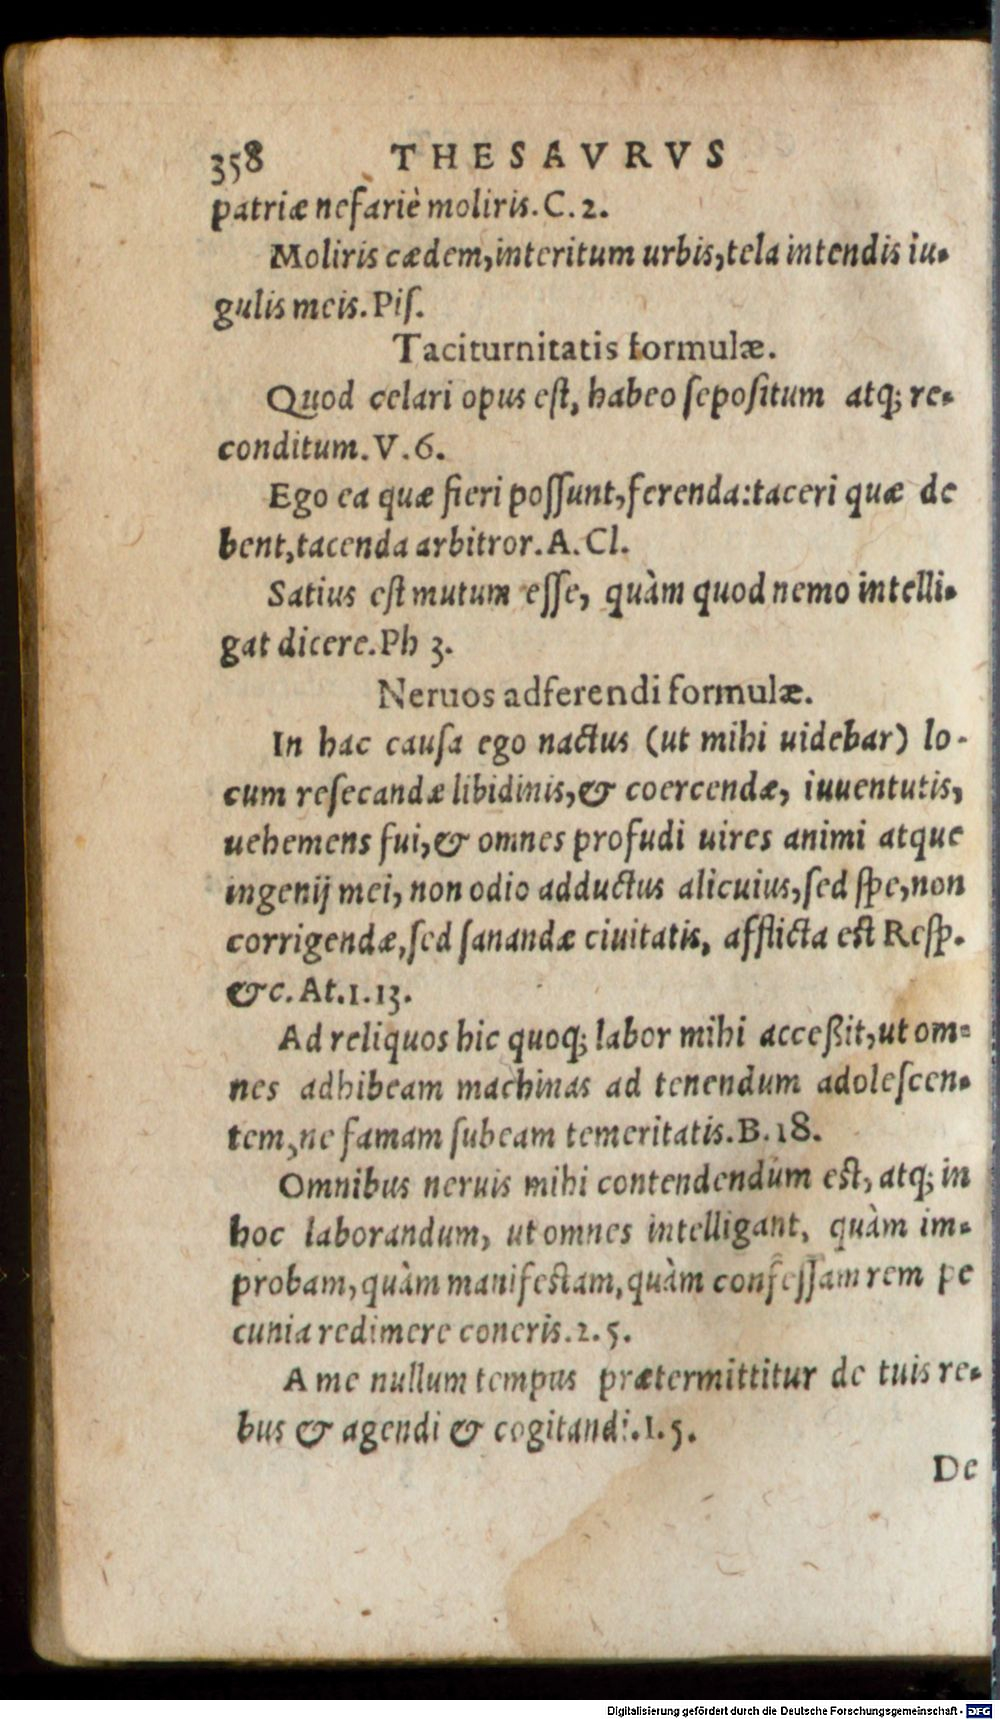 358 THESAVRVS
patriæ nefariè moliris. C. 2.
Moliris cædem, interitum urbis, tela intendis iu-
gulis meis. Piſ.
Taciturnitatis formulæ.
Quod celari opus eſt, habeo ſepoſitum atq; re-
conditum. V. 6.
Ego ea quæ fieri poſſunt, ferenda: taceri quæ de
bent, tacenda arbitror. A. Cl.
Satius eſt mutum eſſe, quàm quod nemo intelli-
gat dicere. Ph 3.
Neruos adferendi formulæ.
In hac cauſa ego nactus (ut mihi uidebar) lo-
cum reſecandæ libidinis, & coercendæ, iuuentutis,
uehemens fui, & omnes profudi uires animi atque
ingenij mei, non odio adductus alicuius, ſed ſpe, non
corrigendæ, ſed ſanandæ ciuitatis, afflicta eſt Reſp.
&c. At. 1. 13.
Ad reliquos hic quoq; labor mihi acceßit, ut om-
nes adhibeam machinas ad tenendum adoleſcen-
tem, ne famam ſubeam temeritatis. B. 18.
Omnibus neruis mihi contendendum eſt, atq; in
hoc laborandum, ut omnes intelligant, quàm im-
probam, quàm manifeſtam, quàm confeſſam rem pe
cunia redimere coneris. 2. 5.
A me nullum tempus prætermittitur de tuis re-
bus & agendi & cogitandi. 1. 5.
De
Digitalisierung gefördert durch die Deutsche Forschungsgemeinschaft - DFG